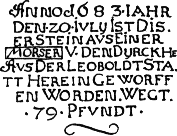 ANNO 1683. IAHR
DEN ZO. IVLU. IST DIS.
ER STEIN AVS EINER
MORSER V. DEN DVRCKHE
AVS DER LEOBOLDT STA
TT HEREIN GEWORFF
EN WORDEN. WEGT.
· 79 · PFVNDT ·